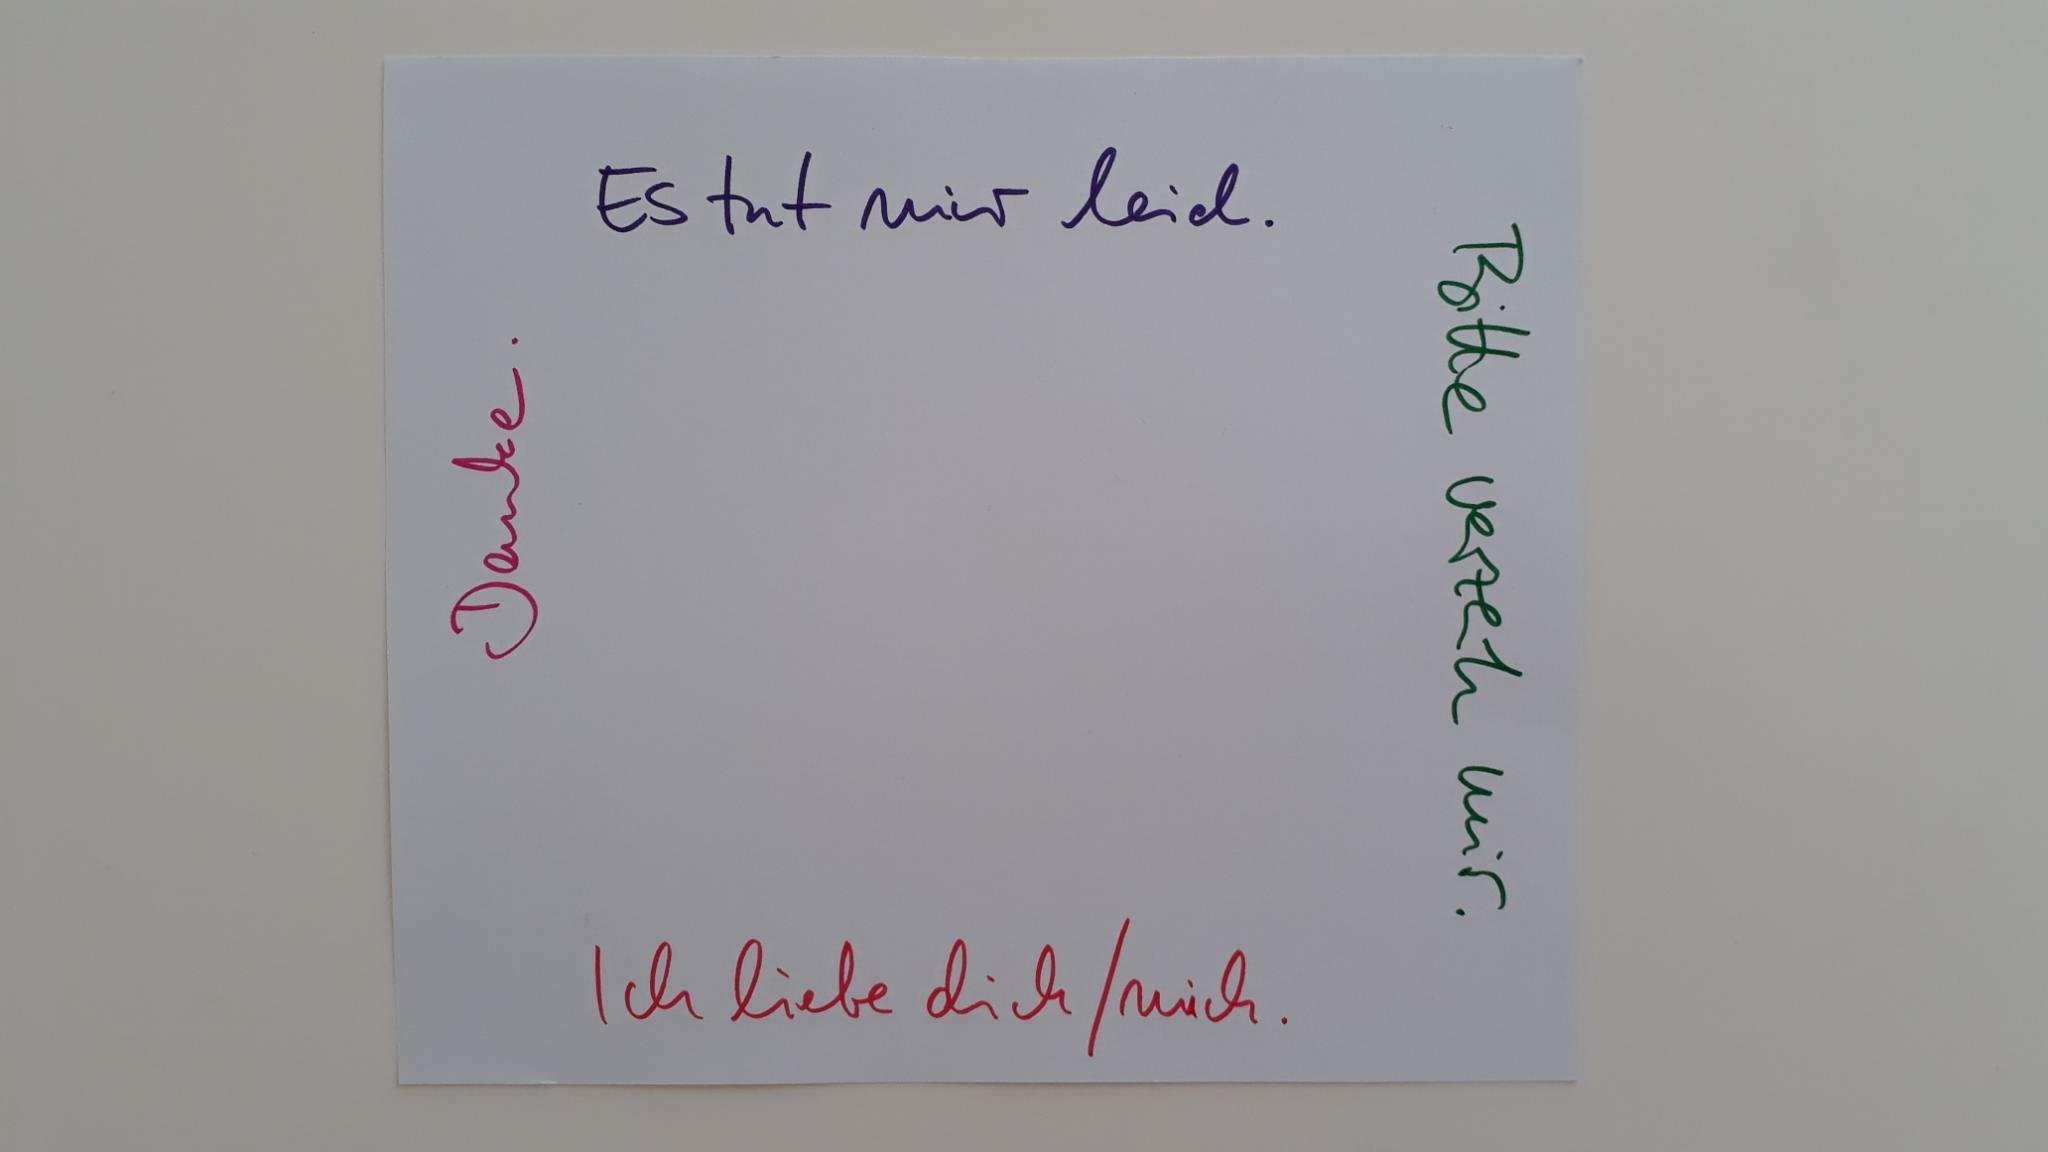 Es tut mir leid.
Bitte verzeh mir.
Ich liebe dich/mich.
Danke.